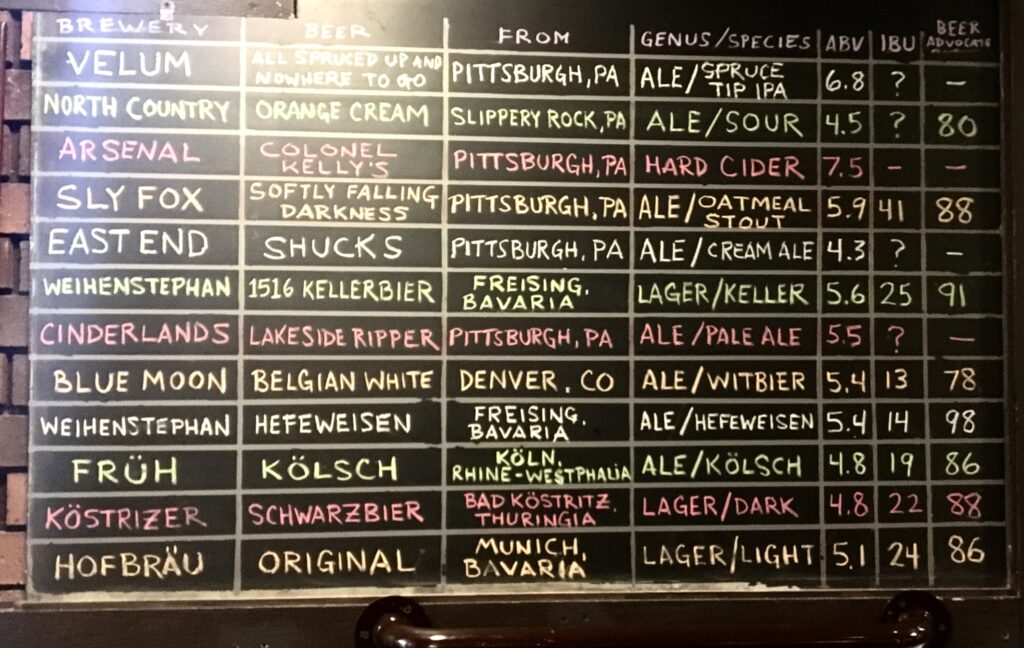 BREWERY BEER FROM GENUS/SPECIES ABV IBU BEER ADVOCATE
VELUM ALL SPRUCED UP AND NOWHERE TO GO PITTSBURGH, PA ALE/SPRUCE TIP IPA 6.8 ? —
NORTH COUNTRY ORANGE CREAM SLIPPERY ROCK, PA ALE/SOUR 4.5 ? 80
ARSENAL COLONEL KELLY'S PITTSBURGH, PA HARD CIDER 7.5 — —
SLY FOX SOFTLY FALLING DARKNESS PITTSBURGH, PA ALE/OATMEAL STOUT 5.9 41 88
EAST END SHUCKS PITTSBURGH, PA ALE/CREAM ALE 4.3 ? —
WEIHENSTEPHAN 1516 KELLERBIER FREISING, BAVARIA LAGER/KELLER 5.6 25 91
CINDERLANDS LAKESIDE RIPPER PITTSBURGH, PA ALE/PALE ALE 5.5 ? —
BLUE MOON BELGIAN WHITE DENVER, CO ALE/WITBIER 5.4 13 78
WEIHENSTEPHAN HEFEWEISEN FREISING, BAVARIA ALE/HEFEWEISEN 5.4 14 98
FRÜH KÖLSCH KÖLN, RHINE-WESTPHALIA ALE/KÖLSCH 4.8 19 86
KÖSTRIZER SCHWARZBIER BAD KÖSTRITZ, THURINGIA LAGER/DARK 4.8 22 88
HOFBRÄU ORIGINAL MUNICH, BAVARIA LAGER/LIGHT 5.1 24 86